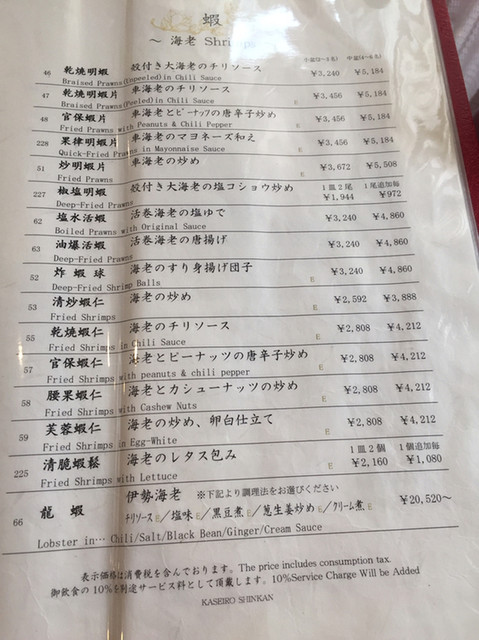 蝦
～ 海老 Shrimps
小皿(2～3名) 中皿(4～6名)
46 乾焼明蝦 殻付き大海老のチリソース ¥3,240 ¥5,184
Braised Prawns(Unpeeled)in Chili Sauce
47 乾焼明蝦片 車海老のチリソース ¥3,456 ¥5,184
Braised Prawns(Peeled)in Chili Sauce
48 官保蝦片 車海老とピーナッツの唐辛子炒め E ¥3,456 ¥5,184
Fried Prawns with Peanuts & Chili Pepper
228 果律明蝦片 車海老のマヨネーズ和え E ¥3,456 ¥5,184
Quick-Fried Prawns in Mayonnaise Sauce
51 炒明蝦片 車海老の炒め E ¥3,672 ¥5,508
Fried Prawns
227 椒塩明蝦 殻付き大海老の塩コショウ炒め 1皿2尾 1尾追加毎
¥1,944 ¥972
Deep-Fried Prawns
62 塩水活蝦 活巻海老の塩ゆで ¥3,240 ¥4,860
Boiled Prawns with Original Sauce
63 油爆活蝦 活巻海老の唐揚げ ¥3,240 ¥4,860
Deep-Fried Prawns
52 炸蝦球 海老のすり身揚げ団子 E ¥3,240 ¥4,860
Deep-Fried Shrimp Balls
53 清炒蝦仁 海老の炒め E ¥2,592 ¥3,888
Fried Shrimps
55 乾焼蝦仁 海老のチリソース E ¥2,808 ¥4,212
Fried Shrimps in Chili Sauce
57 官保蝦仁 海老とピーナッツの唐辛子炒め E ¥2,808 ¥4,212
Fried Shrimps with peanuts & chili pepper
58 腰果蝦仁 海老とカシューナッツの炒め E ¥2,808 ¥4,212
Fried Shrimps with Cashew Nuts
59 芙蓉蝦仁 海老の炒め、卵白仕立て E ¥2,808 ¥4,212
Fried Shrimps in Egg-White
225 清脆蝦鬆 海老のレタス包み 1皿2個 1個追加毎
E ¥2,160 ¥1,080
Fried Shrimps with Lettuce
66 龍蝦 伊勢海老 ※下記より調理法をお選びください ¥20,520～
チリソースE/塩味E/黒豆煮E/葱生姜炒めE/クリーム煮E
Lobster in… Chili/Salt/Black Bean/Ginger/Cream Sauce
表示価格は消費税を含んでおります。The price includes consumption tax.
御飲食の10%を別途サービス料として頂戴します。10%Service Charge Will be Added
KASEIRO SHINKAN